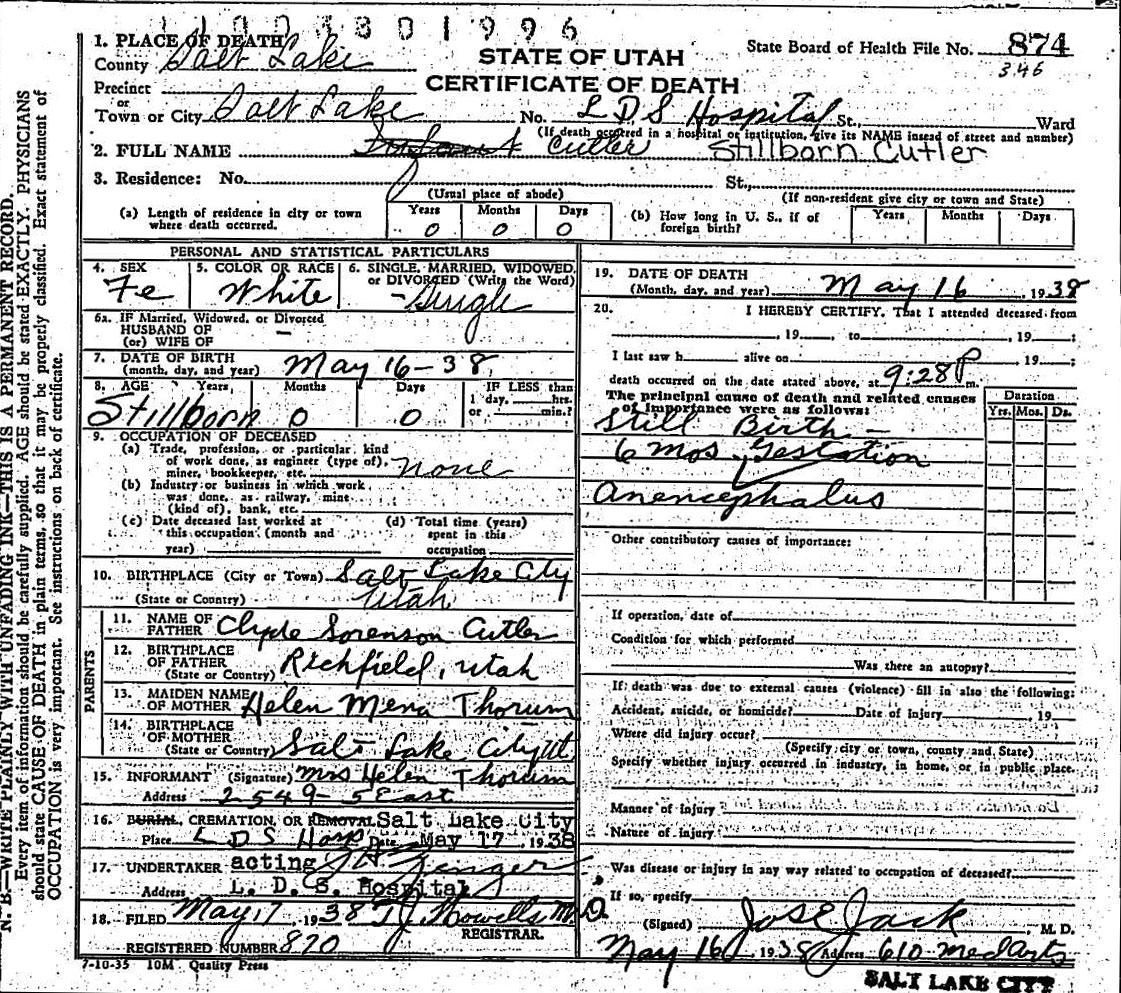 1. PLACE OF DEATH
County Salt Lake
STATE OF UTAH
CERTIFICATE OF DEATH
State Board of Health File No. 874
346
Precinct
or
Town or City Salt Lake No. L.D.S Hospital St., Ward
(If death occurred in a hospital or institution, give its NAME insead of street and number)
2. FULL NAME Cutler Stillborn Cutler
3. Residence: No. St.,
(Usual place of abode) (If non-resident give city or town and State)
(a) Length of residence in city or town
where death occurred.
Years Months Days
0 0 0
(b) How long in U. S., if of
foreign birth?
Years Months Days
PERSONAL AND STATISTICAL PARTICULARS
4. SEX
Fe
5. COLOR OR RACE
White
6. SINGLE, MARRIED, WIDOWED,
or DIVORCED (Write the Word)
Single
6a. IF Married, Widowed, or Divorced
HUSBAND OF —
(or) WIFE OF
7. DATE OF BIRTH
(month, day, and year) May 16-38
8. AGE Years, Months Days
Stillborn 0 0
IF LESS than
1 day, hrs.
or min.?
9. OCCUPATION OF DECEASED
(a) Trade, profession, or particular kind
of work done, as engineer (type of),
miner, bookkeeper, etc. none
(b) Industry or business in which work
was done, as railway, mine
(kind of), bank, etc.
(c) Date deceased last worked at
this occupation (month and
year)
(d) Total time (years)
spent in this
occupation
10. BIRTHPLACE (City or Town) Salt Lake City
(State or Country) Utah
PARENTS
11. NAME OF
FATHER Clyde Sorenson Cutler
12. BIRTHPLACE
OF FATHER
(State or Country) Richfield, Utah
13. MAIDEN NAME
OF MOTHER Helen Mena Thorum
14. BIRTHPLACE
OF MOTHER
(State or Country) Salt Lake City Ut
15. INFORMANT (Signature) Mrs Helen Thorum
Address 2549-5 East
16. BURIAL, CREMATION, OR REMOVAL Salt Lake City
Place L D S Hosp Date May 17, 1938
17. UNDERTAKER acting
Address L. D. S. Hospital
18. FILED May 17 1938 T J Howells M.D
REGISTRAR.
REGISTERED NUMBER 870
7-10-35 10M Quality Press
19. DATE OF DEATH
(Month, day, and year) May 16, 1938
20. I HEREBY CERTIFY, That I attended deceased from
, 19 , to , 19 ;
I last saw h alive on , 19 ;
death occurred on the date stated above, at 9:28 P m.
The principal cause of death and related causes
of importance were as follows:
Duration
Yrs. Mos. Ds.
Still Birth -
6 mos Gestation
Anencephalus
Other contributory causes of importance:
If operation, date of
Condition for which performed
Was there an autopsy?
If death was due to external causes (violence) fill in also the following:
Accident, suicide, or homicide? Date of Injury , 19
Where did injury occur?
(Specify city or town, county and State)
Specify whether injury occurred in industry, in home, or in public place.
Manner of injury
Nature of injury
Was disease or injury in any way related to occupation of deceased?
If so, specify
(Signed) Jos E Jack , M. D.
May 16 1938 Address 610 Med Arts
SALT LAKE CITY
N. B.—WRITE PLAINLY WITH UNFADING INK—THIS IS A PERMANENT RECORD.
Every item of information should be carefully supplied. AGE should be stated EXACTLY. PHYSICIANS
should state CAUSE OF DEATH in plain terms, so that it may be properly classified. Exact statement of
OCCUPATION is very important. See instructions on back of certificate.